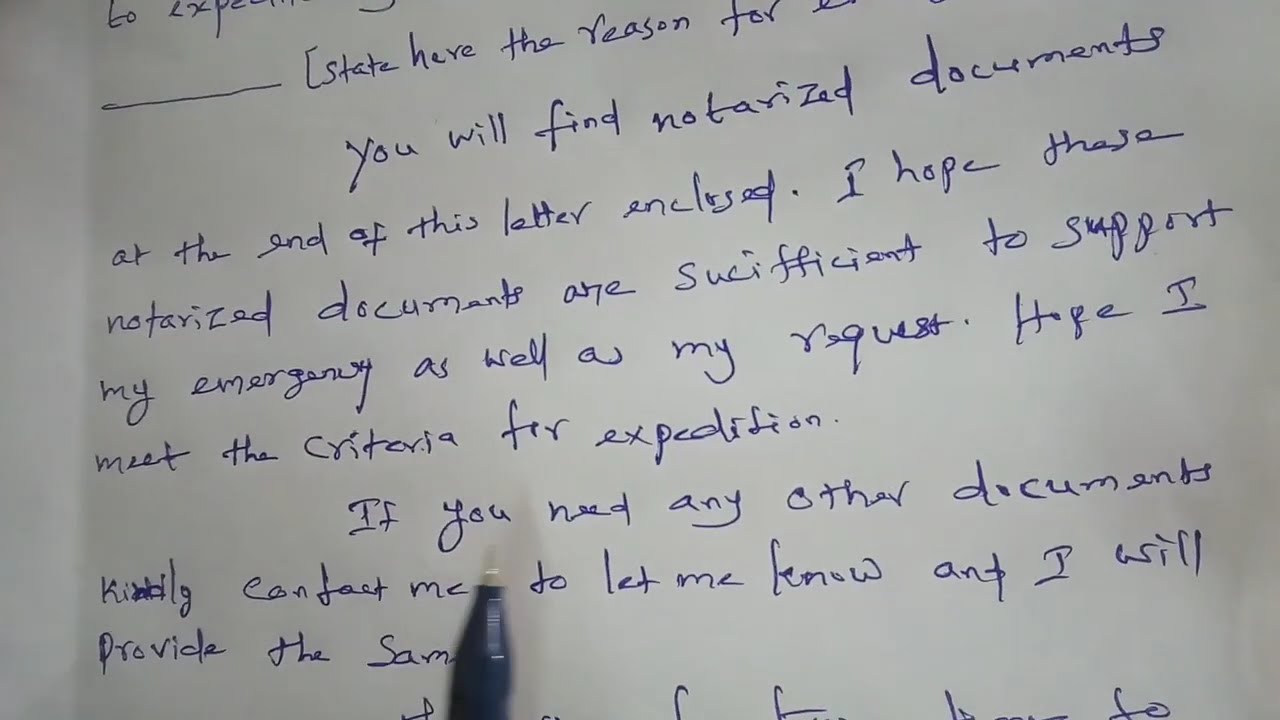 to
[state here the reason for
You will find notarized documents
at the end of this letter enclosed. I hope these
notarized documents are sucifficient to support
my emergency as well as my request. Hope I
meet the criteria for expedition.
If you need any other documents
Kindly contact me to let me know and I will
Provide the
to